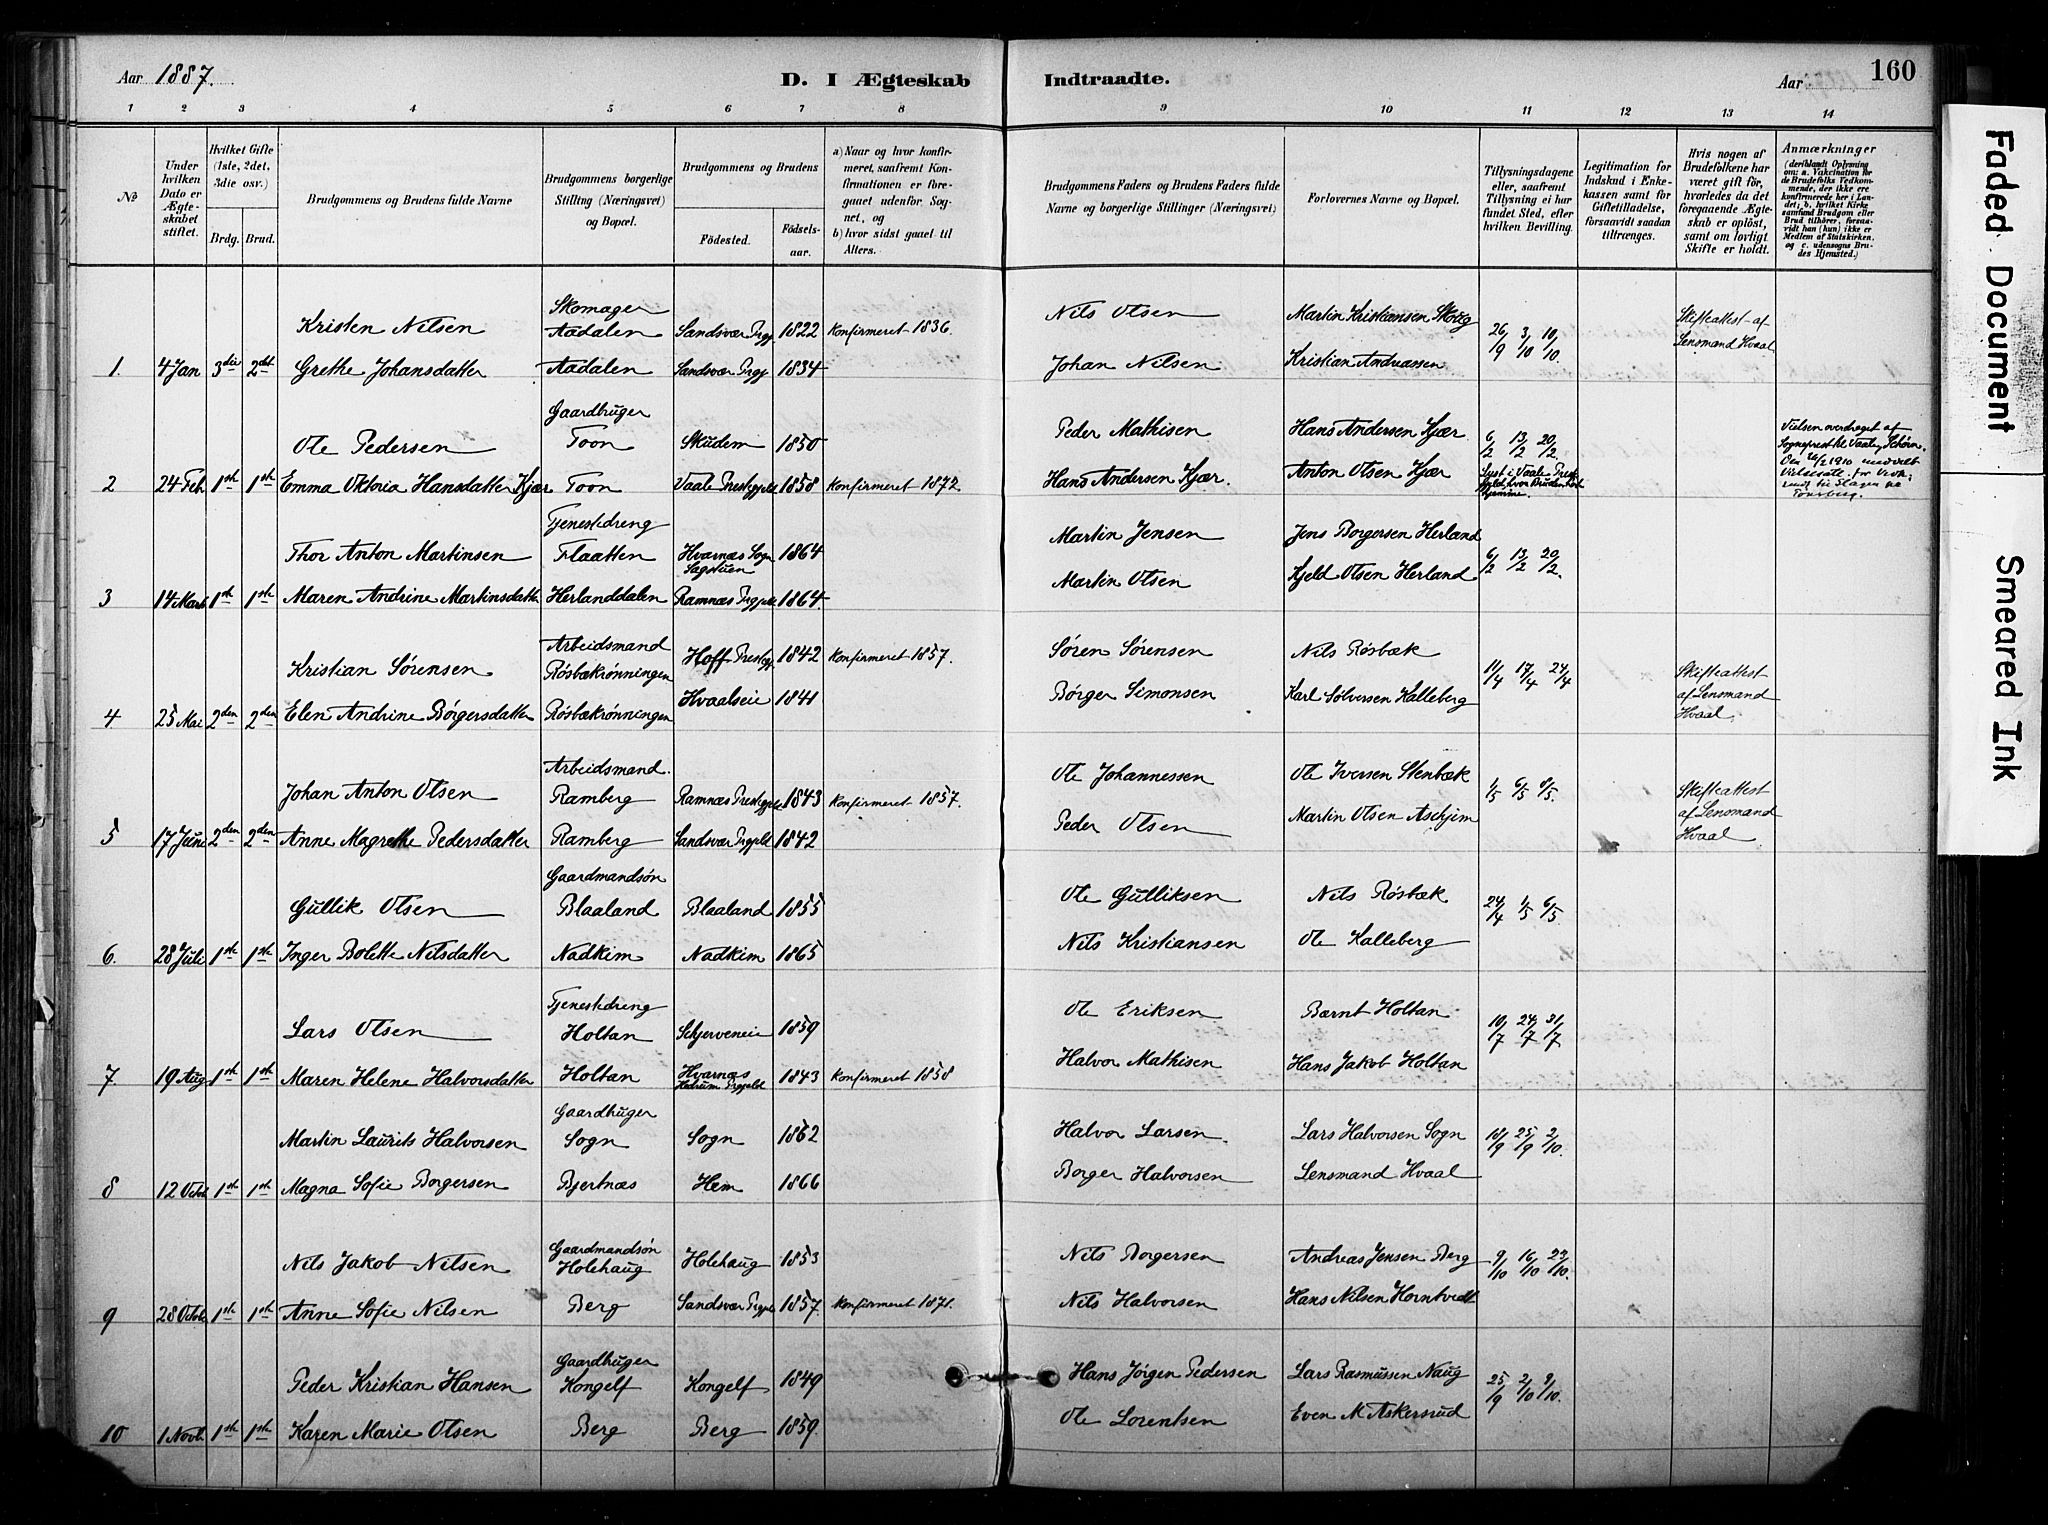 Aar 1887.
D. I Ægteskab Indtraadte.
Aar
160
1 2 3 4 5 6 7 8 9 10 11 12 13 14
No
Under hvilken Dato er Ægteskabet stiftet.
Hvilket Gifte (1ste, 2det, 3die osv.)
Brdg. Brud.
Brudgommens og Brudens fulde Navne
Brudgommens borgerlige Stilling (Næringsvei) og Bopæl.
Brudgommens og Brudens
Födested.
Födselsaar.
a) Naar og hvor konfirmeret, saafremt Konfirmationen er foregaaet udenfor Sognet, og
b) hvor sidst gaaet til Alters.
Brudgommens Faders og Brudens Faders fulde Navne og borgerlige Stillinger (Næringsvei)
Forlovernes Navne og Bopæl.
Tillysningsdagene eller, saafremt Tillysning ei har fundet Sted, efter hvilken Bevilling.
Legitimation for Indskud i Enkekassen samt for Giftetilladelse, forsaavidt saadan tiltrænges.
Hvis nogen af Brudefolkene har været gift för, hvorledes da det foregaaende Ægteskab er oplöst, samt om lovligt Skifte er holdt.
Anmærkninger
(deriblandt Oplysning om: a. Vakcination for de Brudefolks Vedkommende, der ikke ere konfirmerede her i Landet; b. hvilket Kirkesamfund Brudgom eller Brud tilhörer, forsaavidt han (hun) ikke er Medlem af Statskirken, og c. udensogns Brudes Hjemsted.)
Skomager
Kristen Nilsen Aadalen Sandsvær Prgj. 1822 Konfirmeret 1836. Nils Olsen Martin Kristiansen Skoug 26/9 3/10 10/10 Skifteattest af Lensmand Hvaal
1. 4 Jan 3die 2det Grethe Johansdatter Aadalen Sandsvær Prgj 1834 Johan Nilsen Kristian Andreassen
Gaardbruger
Ole Pedersen Toon Skudem 1850 Peder Mathisen Hans Andersen Kjær 6/2 13/2 20/2.
2 24 Feb 1ste 1ste Emma Oktoria Hansdatter Kjær Toon Vaale Prestegjeld 1858 Konfirmeret 1872. Hans Andersen Kjær. Anton Olsen Kjær
Lyst i Vaale Prestegjeld, hvor Bruden har hjemme
Vielsen overdraget af Sogneprest til Vaale, Schørn.
Den 26/2 1910 meddelt
Tønsberg.
Tjenestedreng
Thor Anton Martinsen Flaatten Hvarnæs Sogn Sagstuen 1864 Martin Jensen Jens Borgersen Herland 6/2 13/2 20/2.
3 14 Marts 1ste 1ste Maren Andrine Martinsdatter Herlanddalen Ramnæs Prgjeld 1864 Martin Olsen Kjeld Olsen Herland
Arbeidsmand
Kristian Sørensen Røsbækrønningen Hoff Prestegj. 1842 Konfirmeret 1857. Søren Sørensen Nils Røsbæk 11/4 17/4 24/4 Skifteattest af Lensmand Hvaal
4 25 Mai 2den 2den Elen Andrine Børgersdatter Røsbækrønningen Hvaalseie 1841 Børger Simonsen Karl Sølversen Kalleberg
Arbeidsmand.
Johan Anton Olsen Ramberg Ramnæs Prestegjeld 1843 Konfirmeret 1857. Ole Johannessen Ole Iversen Stenbæk 1/5 6/5 8/5. Skifteattest af Lensmand Hvaal
5 17 Juni 2den 2den Anne Magrethe Pedersdatter Ramberg Sandsvær Prgjeld 1842 Peder Olsen Martin Olsen Aschjem
Gaardmandsøn
Gullik Olsen Blaaland Blaaland 1855 Ole Gulliksen Nils Røsbæk 24/4 1/5 6/5
6. 28 Juli 1ste 1ste Inger Bolette Nilsdatter Nadkim Nadkim 1865 Nils Kristiansen Ole Kalleberg
Tjenestedreng
Lars Olsen Holtan Schjerveneie 1859 Ole Eriksen Bærnt Holtan 10/7 24/7 31/7
7 19 Aug 1ste 1ste Maren Helene Halvorsdatter Holtan Hvarnæs Hedrum Prgjeld 1843 Konfirmeret 1858 Halvor Mathisen Hans Jakob Holtan
Gaardbruger
Martin Laurits Halvorsen Sogn Sogn 1862 Halvor Larsen. Lars Halvorsen Sogn 18/9 25/9 2/10.
8 12 Octob 1ste 1ste Magna Sofie Borgersen Bjertnæs Hem 1866 Borger Halvorsen Lensmand Hvaal
Gaardmandsøn
Nils Jakob Nilsen Holehaug Holehaug 1853 Nils Borgersen Andreas Jensen Berg 9/10 16/10 23/10.
9 28 Octob 1ste 1ste Anne Sofie Nilsen Berg Sandsvær Prgjeld 1857. Konfirmeret 1871. Nils Halvorsen Hans Nilsen Horntvedt
Gaardbruger
Peder Kristian Hansen Kongelf Kongelf 1849 Hans Jørgen Pedersen Lars Rasmussen Naug 25/9 2/10 9/10.
10 1 Novb. 1ste 1ste Karen Marie Olsen Berg Berg 1859. Ole Lorentsen Even M Askersrud
Faded Document
Smeared Ink